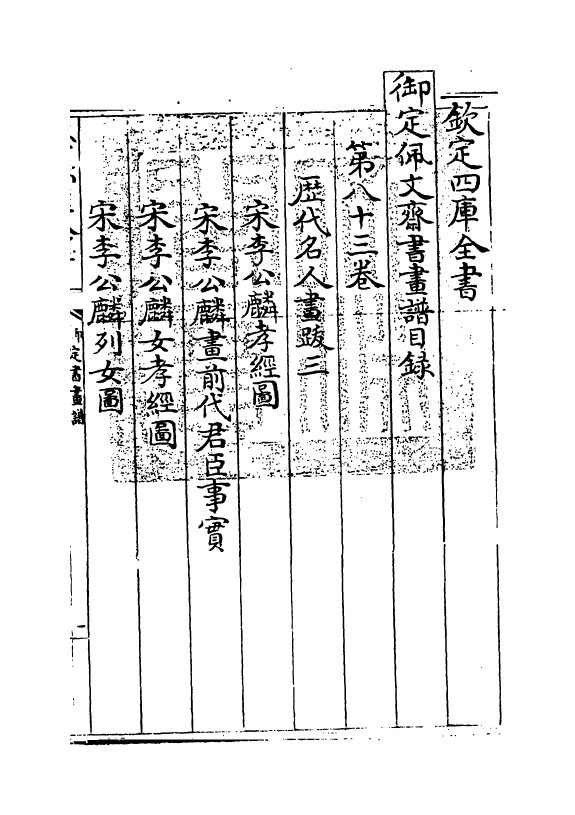 欽定四庫全書
御定佩文齋書畫譜目録
第八十三卷
歴代名人畫跋三
宋李公麟孝經圖
宋李公麟畫前代君臣事實
宋李公麟女孝經圖
宋李公麟列女圖
御定書畫譜
一